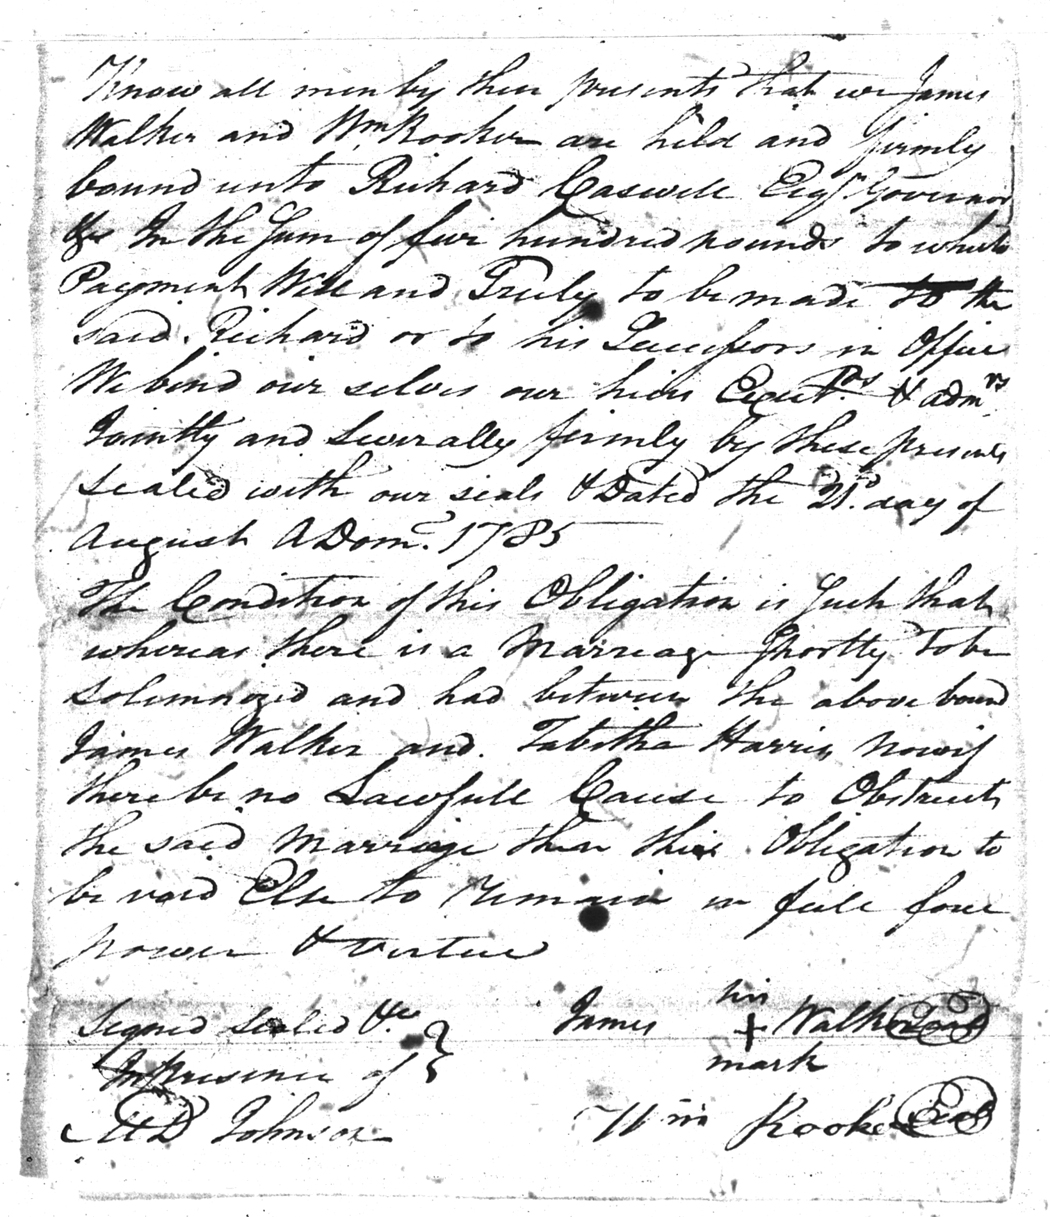 Know all men by these presents that we James
Walker and Wm Rooker are held and firmly
bound unto Richard Caswell Esqr. Governor
&c In the Sum of five hundred pounds to which
Payment Well and Truly to be made to the
said Richard or to his Successors in Office
We bind our selves our heirs Execut.ors & admrs
Jointly and Severally firmly by these presents
Sealed with our seals & Dated the 21st day of
August A Dom. 1785
The Condition of this Obligation is Such that
whereas there is a Marreage Shortly to be
Solemnized and had between the above bound
James Walker and Tabitha Harris, now if
there be no Lawfull Cause to Obstruct
the said Marriage then this Obligation to
be void Else to Remain in full force
power & virtue
Signed Sealed &c James his + mark Walker Seal
In presence of
MD Johnson Wm Rooker Seal